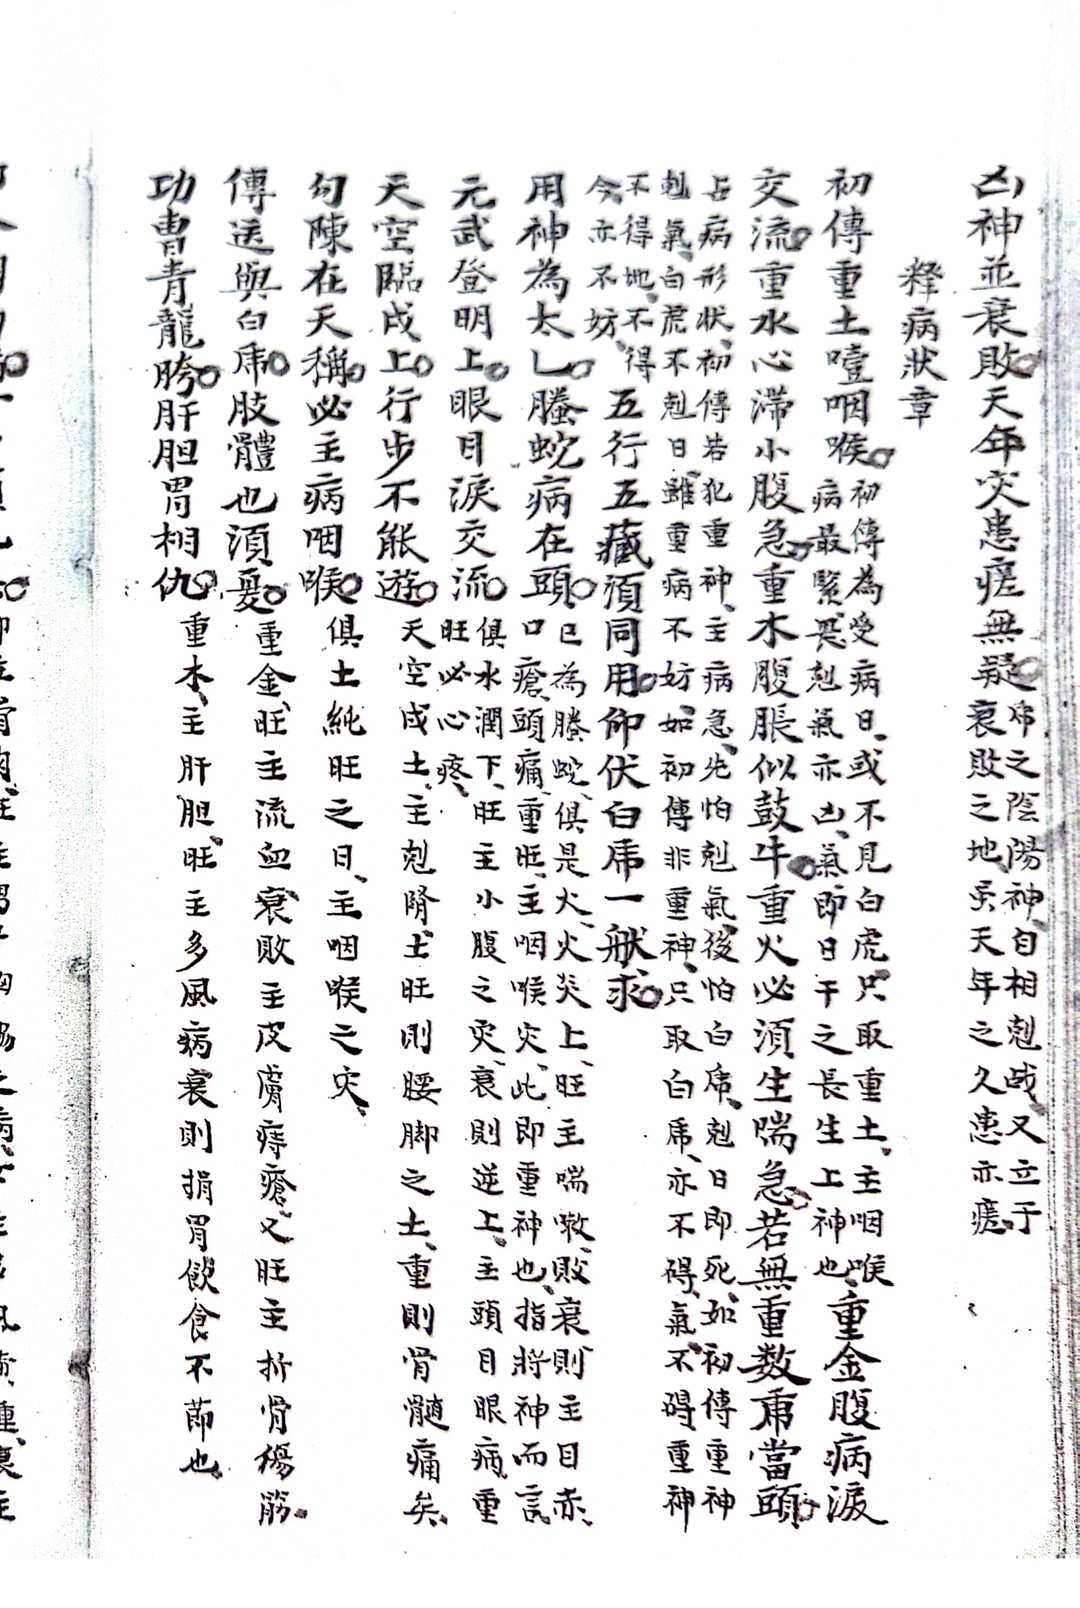 凶神並衰敗天年灾患瘥無疑
虎之陰陽神自相剋战又立于
衰敗之地虽天年之久患亦瘥
釋病狀章
初傳重土噎咽喉
初傳為受病日或不見白虎只取重土主咽喉
病最緊恐剋氣亦凶氣即日干之長生上神也
重金腹病淚
交流重水心滯小腹急重木腹脹似鼓牛重火必須生喘急若無重数虎當頭
占病形状初傳若犯重神主病急先怕剋氣後怕白虎剋日即死如初傳重神
剋氣白虎不剋日雖重病不妨如初傳非重神只取白虎亦不碍氣不碍重神
不得地不得
今亦不妨
五行五藏須同用仰伏白虎一般求
用神為太乚螣蛇病在頭
巳為螣蛇俱是火火炎上旺主喘嗽敗衰則主目赤
口瘡頭痛重旺主咽喉灾此即重神也指將神而言
元武登明上眼目淚交流
俱水潤下旺主小腹之灾衰則逆上主頭目眼病重
旺必心疼
天空臨戌上行步不能遊
天空戌土主剋腎土旺則腰脚之土重則骨髓痛矣
勾陳在天稱必主病咽喉
俱土純旺之日主咽喉之灾
傳送與白虎肢體也須憂
重金旺主流血衰敗主皮膚痔瘡又旺主折骨傷筋
功曹青龍胯肝胆胃相仇
重木主肝胆旺主多風病衰則損胃飲食不節也